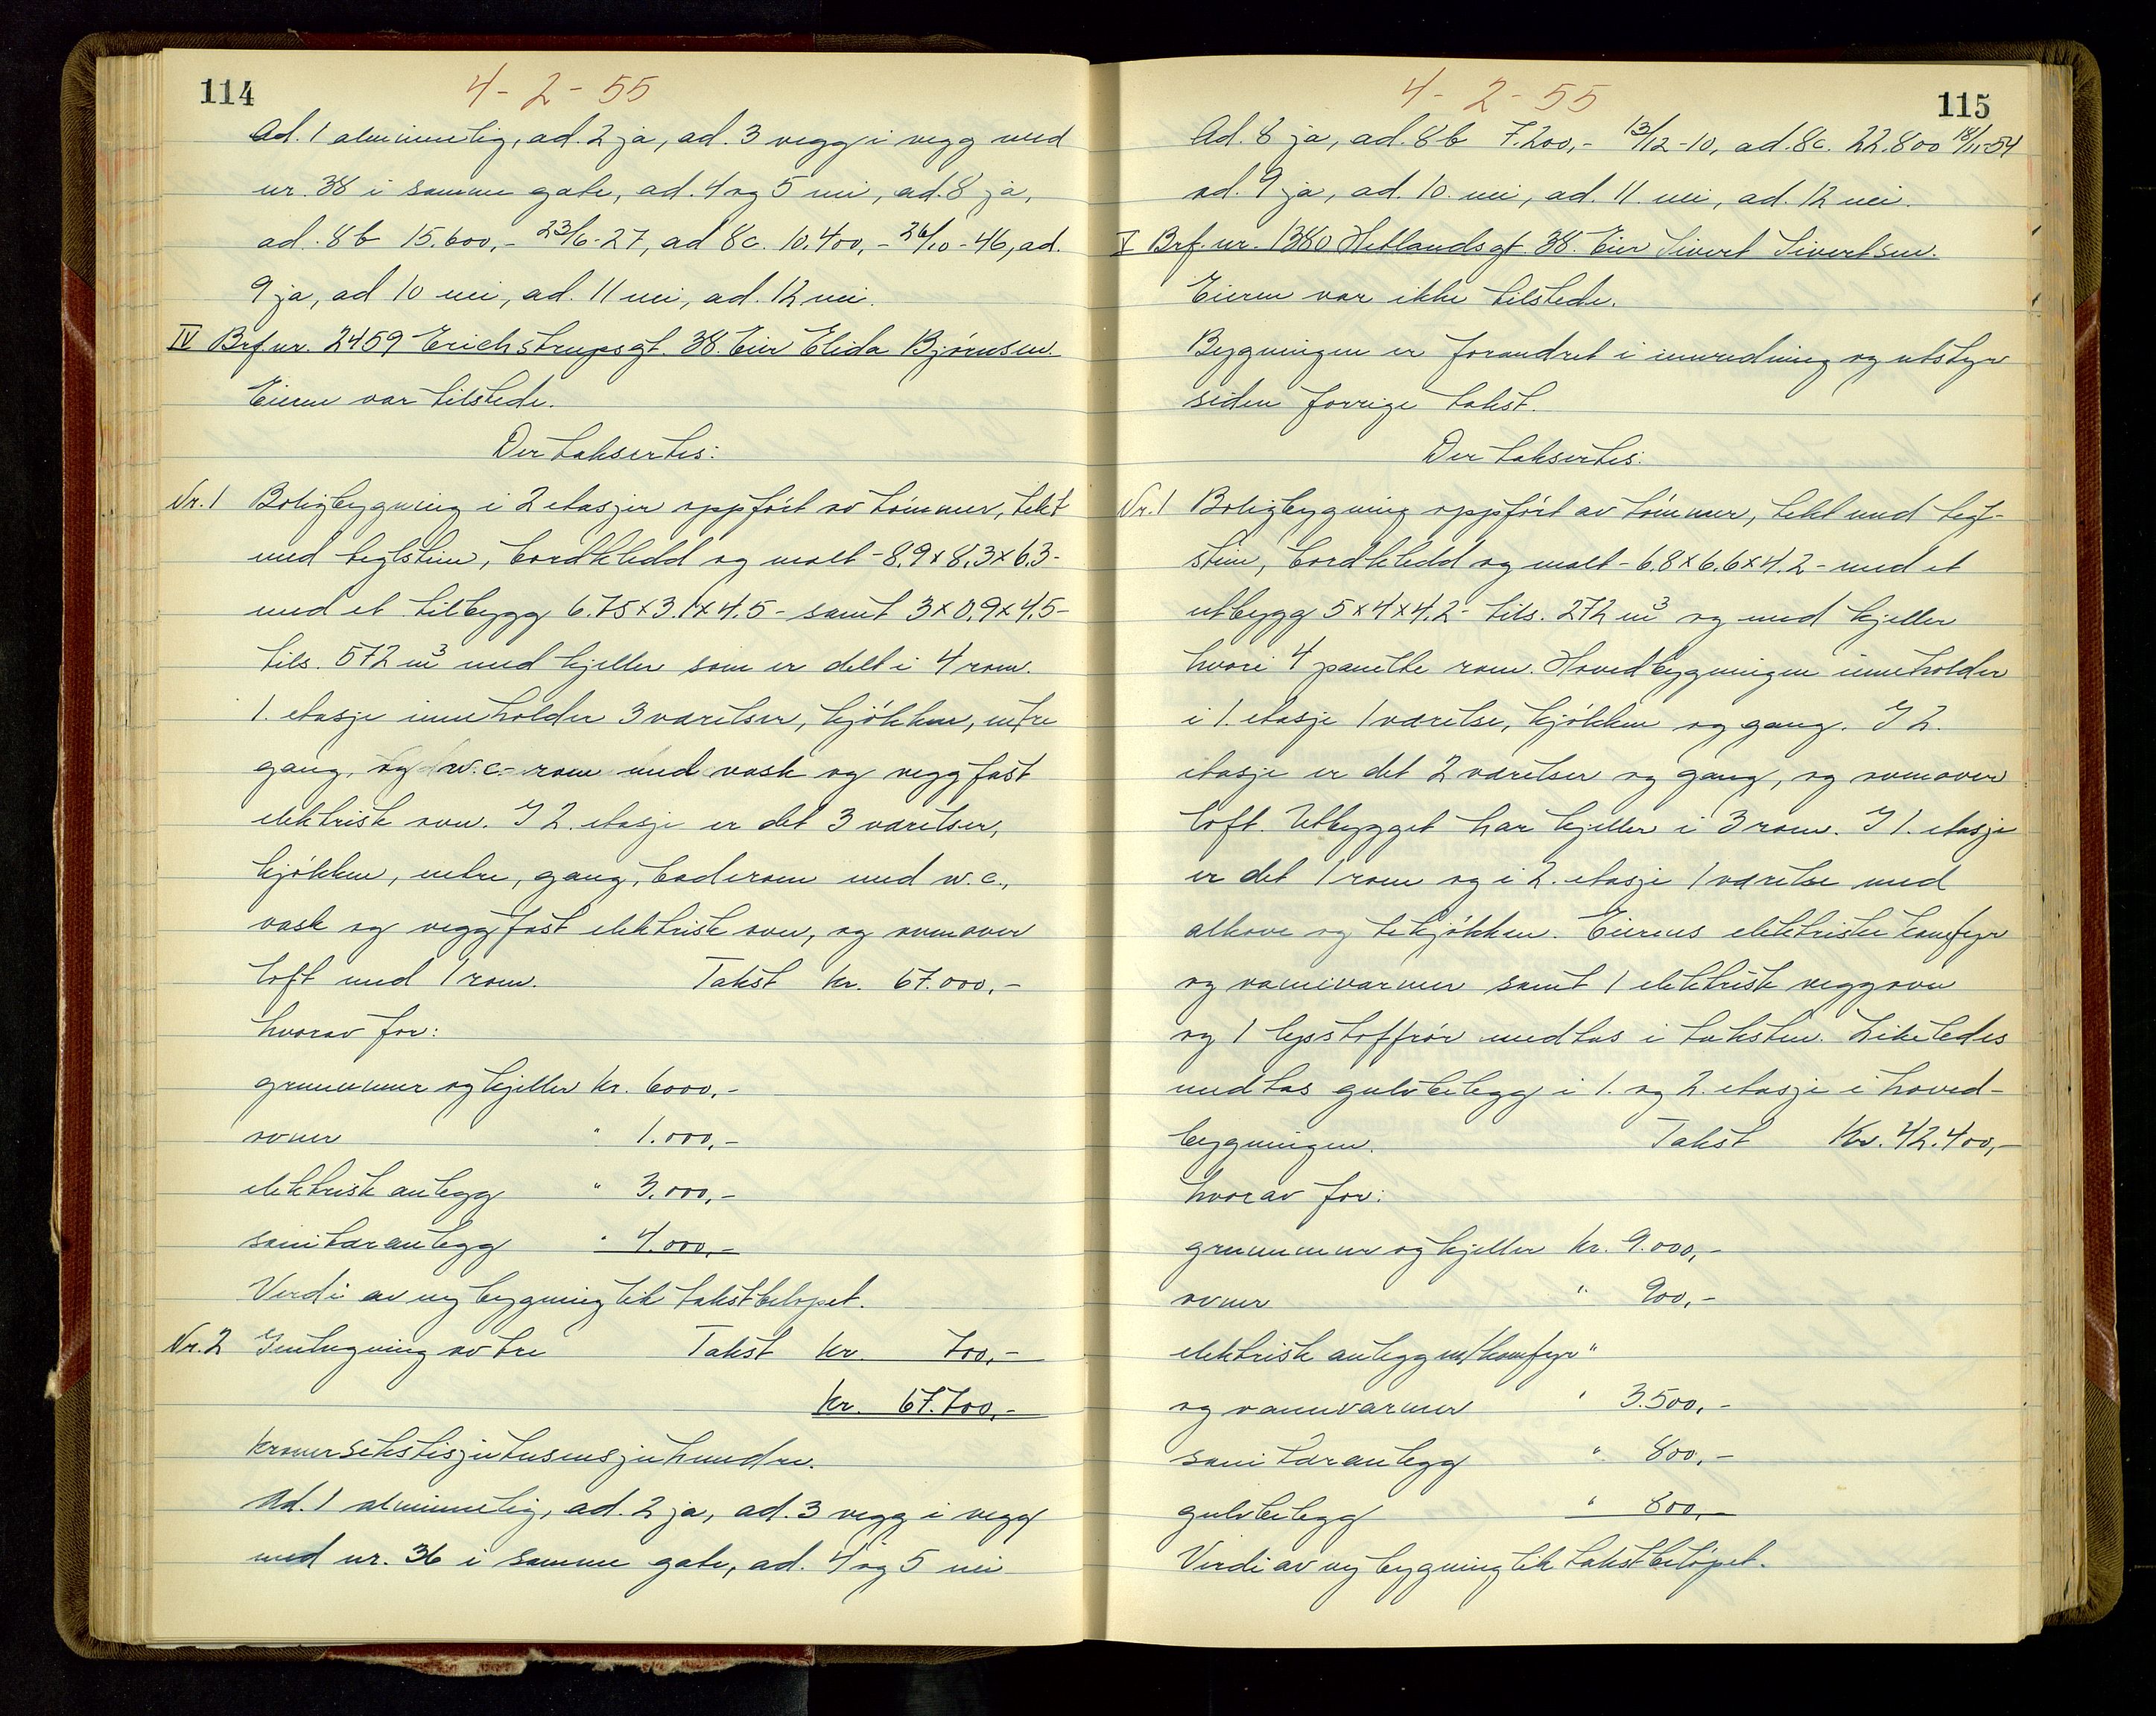 114
4-2-55
Ad. 1 alminnelig, ad. 2 ja, ad. 3 vegg i vegg med
nr. 38 i samme gate, ad. 4 og 5 nei, ad. 8 ja,
ad. 8b 15.600,- 23/6-27, ad 8c. 10.400,- 26/10-46, ad.
9 ja, ad 10 nei, ad. 11 nei, ad. 12 nei.
IV Brf.nr. 2459 Erichstrupsgt. 38. Eier Elida Bjørnsen.
Eieren var tilstede.
Der taksertes:
Nr. 1 Boligbygning i 2 etasjer oppført av tømmer, tekt
med teglstein, bordkledd og malt - 8.9 x 8.3 x 6.3 -
med et tilbygg 6.75 x 3.1 x 4.5 - samt 3 x 0.9 x 4.5 -
tils. 572 m³ med kjeller som er delt i 4 rom.
1. etasje inneholder 3 værelser, kjøkken, entre
gang, og w.c. rom med vask og veggfast
elektrisk ovn. I 2. etasje er det 3 værelser,
kjøkken, entre, gang, baderom med w.c.,
vask og veggfast elektrisk ovn, og ovenover
loft med 1 rom. Takst kr. 67.000,-
hvorav for:
grunnmur og kjeller kr. 6000,-
ovner " 1.000,-
elektrisk anlegg " 3.000,-
sanitæranlegg " 4.000,-
Verdi av ny bygning lik takstbeløpet.
Nr. 2 Innhegning av tre Takst kr. 700,-
kr. 67.700,-
kroner sekstisjutusensjuhundre.
Ad. 1 alminnelig, ad. 2 ja, ad. 3 vegg i vegg
med nr. 36 i samme gate, ad. 4 og 5 nei
115
4-2-55
Ad. 8 ja, ad. 8b 7.200,- 13/12-10, ad. 8c. 22.800 18/11-54
ad. 9 ja, ad. 10. nei, ad. 11. nei, ad. 12 nei.
V Brf. nr. 1380 Hetlandsgt. 38. Eier Sivert Sivertsen.
Eieren var ikke tilstede.
Bygningen er forandret i innredning og utstyr
siden forrige takst.
Der taksertes:
Nr. 1 Boligbygning oppført av tømmer, tekt med tegl-
stein, bordkledd og malt - 6.8 x 6.6 x 4.2 - med et
utbygg 5 x 4 x 4.2 - tils. 272 m³ og med kjeller
hvori 4 panelte rom. Hovedbygningen inneholder
i 1. etasje 1 værelse, kjøkken og gang. I 2.
etasje er det 2 værelser og gang, og ovenover
loft. Utbygget har kjeller i 3 rom. I 1. etasje
er det 1 rom og i 2. etasje 1 værelse med
alkove og tekjøkken. Eierens elektriske komfyr
og vannvarmer samt 1 elektrisk veggovn
og 1 lysstoffrør medtas i taksten. Likeledes
medtas gulvbelegg i 1. og 2. etasje i hoved-
bygningen. Takst Kr. 42.400,-
hvorav for:
grunnmur og kjeller kr. 9.000,-
ovner " 900,-
elektrisk anlegg m/komfyr "
og vannvarmer " 3.500,-
sanitæranlegg " 800,-
gulvbelegg " 800,-
Verdi av ny bygning lik takstbeløpet.